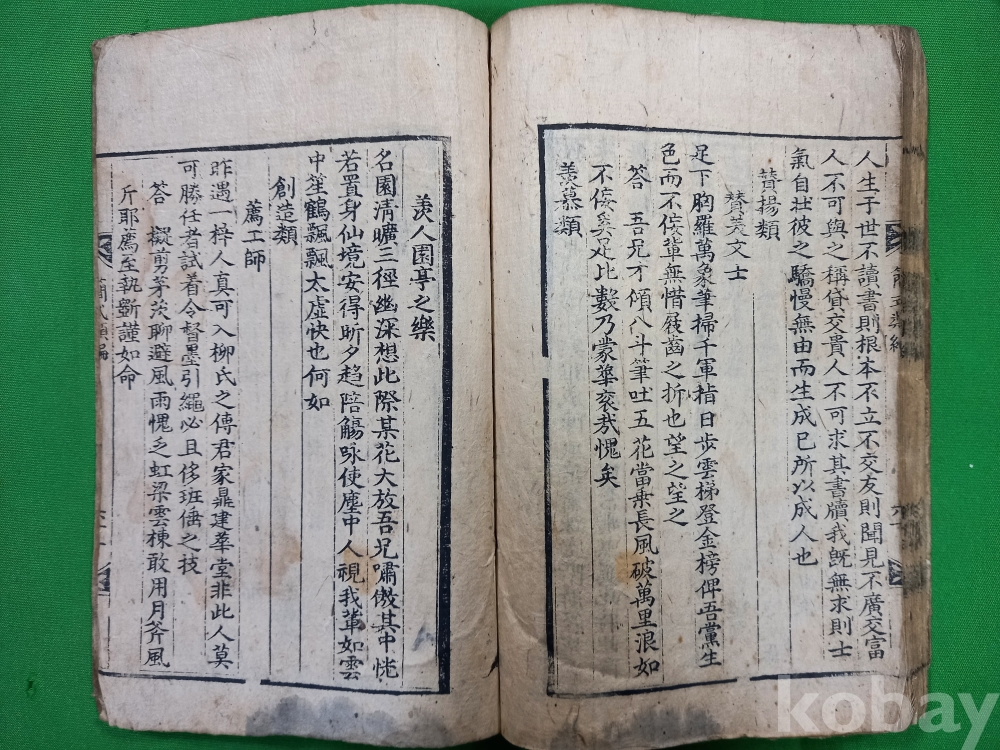 人生于世不讀書則根本不立不交友則聞見不廣交富
人不可與之稱貸交貴人不可求其書牘我既無求則士
氣自壯彼之驕慢無由而生成已所以成人也
贊揚類
贊美文士
足下胸羅萬象筆掃千軍指日步雲梯登金榜俾吾黨生
色而不侫軰無惜屐齒之折也望之望之
答 吾兄才傾八斗筆吐五花當乗長風破萬里浪如
不侫奚足比數乃蒙華衮我愧矣
羡慕類
羡人園亭之樂
名園清曠三徑幽深想此際某花大放吾兄嘯傲其中恍
若置身仙境安得昕夕趋陪觴咏使塵中人視我軰如雲
中笙鶴飄飄太虛快也何如
創造類
薦工師
昨遇一梓人真可入柳氏之傳君家鼎建華堂非此人莫
可勝任者試着令督墨引繩必且侈班倕之技
答 擬剪茅茨聊避風雨愧乏虹梁雲棟敢用月斧風
斤耶薦至執斲謹如命
簡式類編
kobay